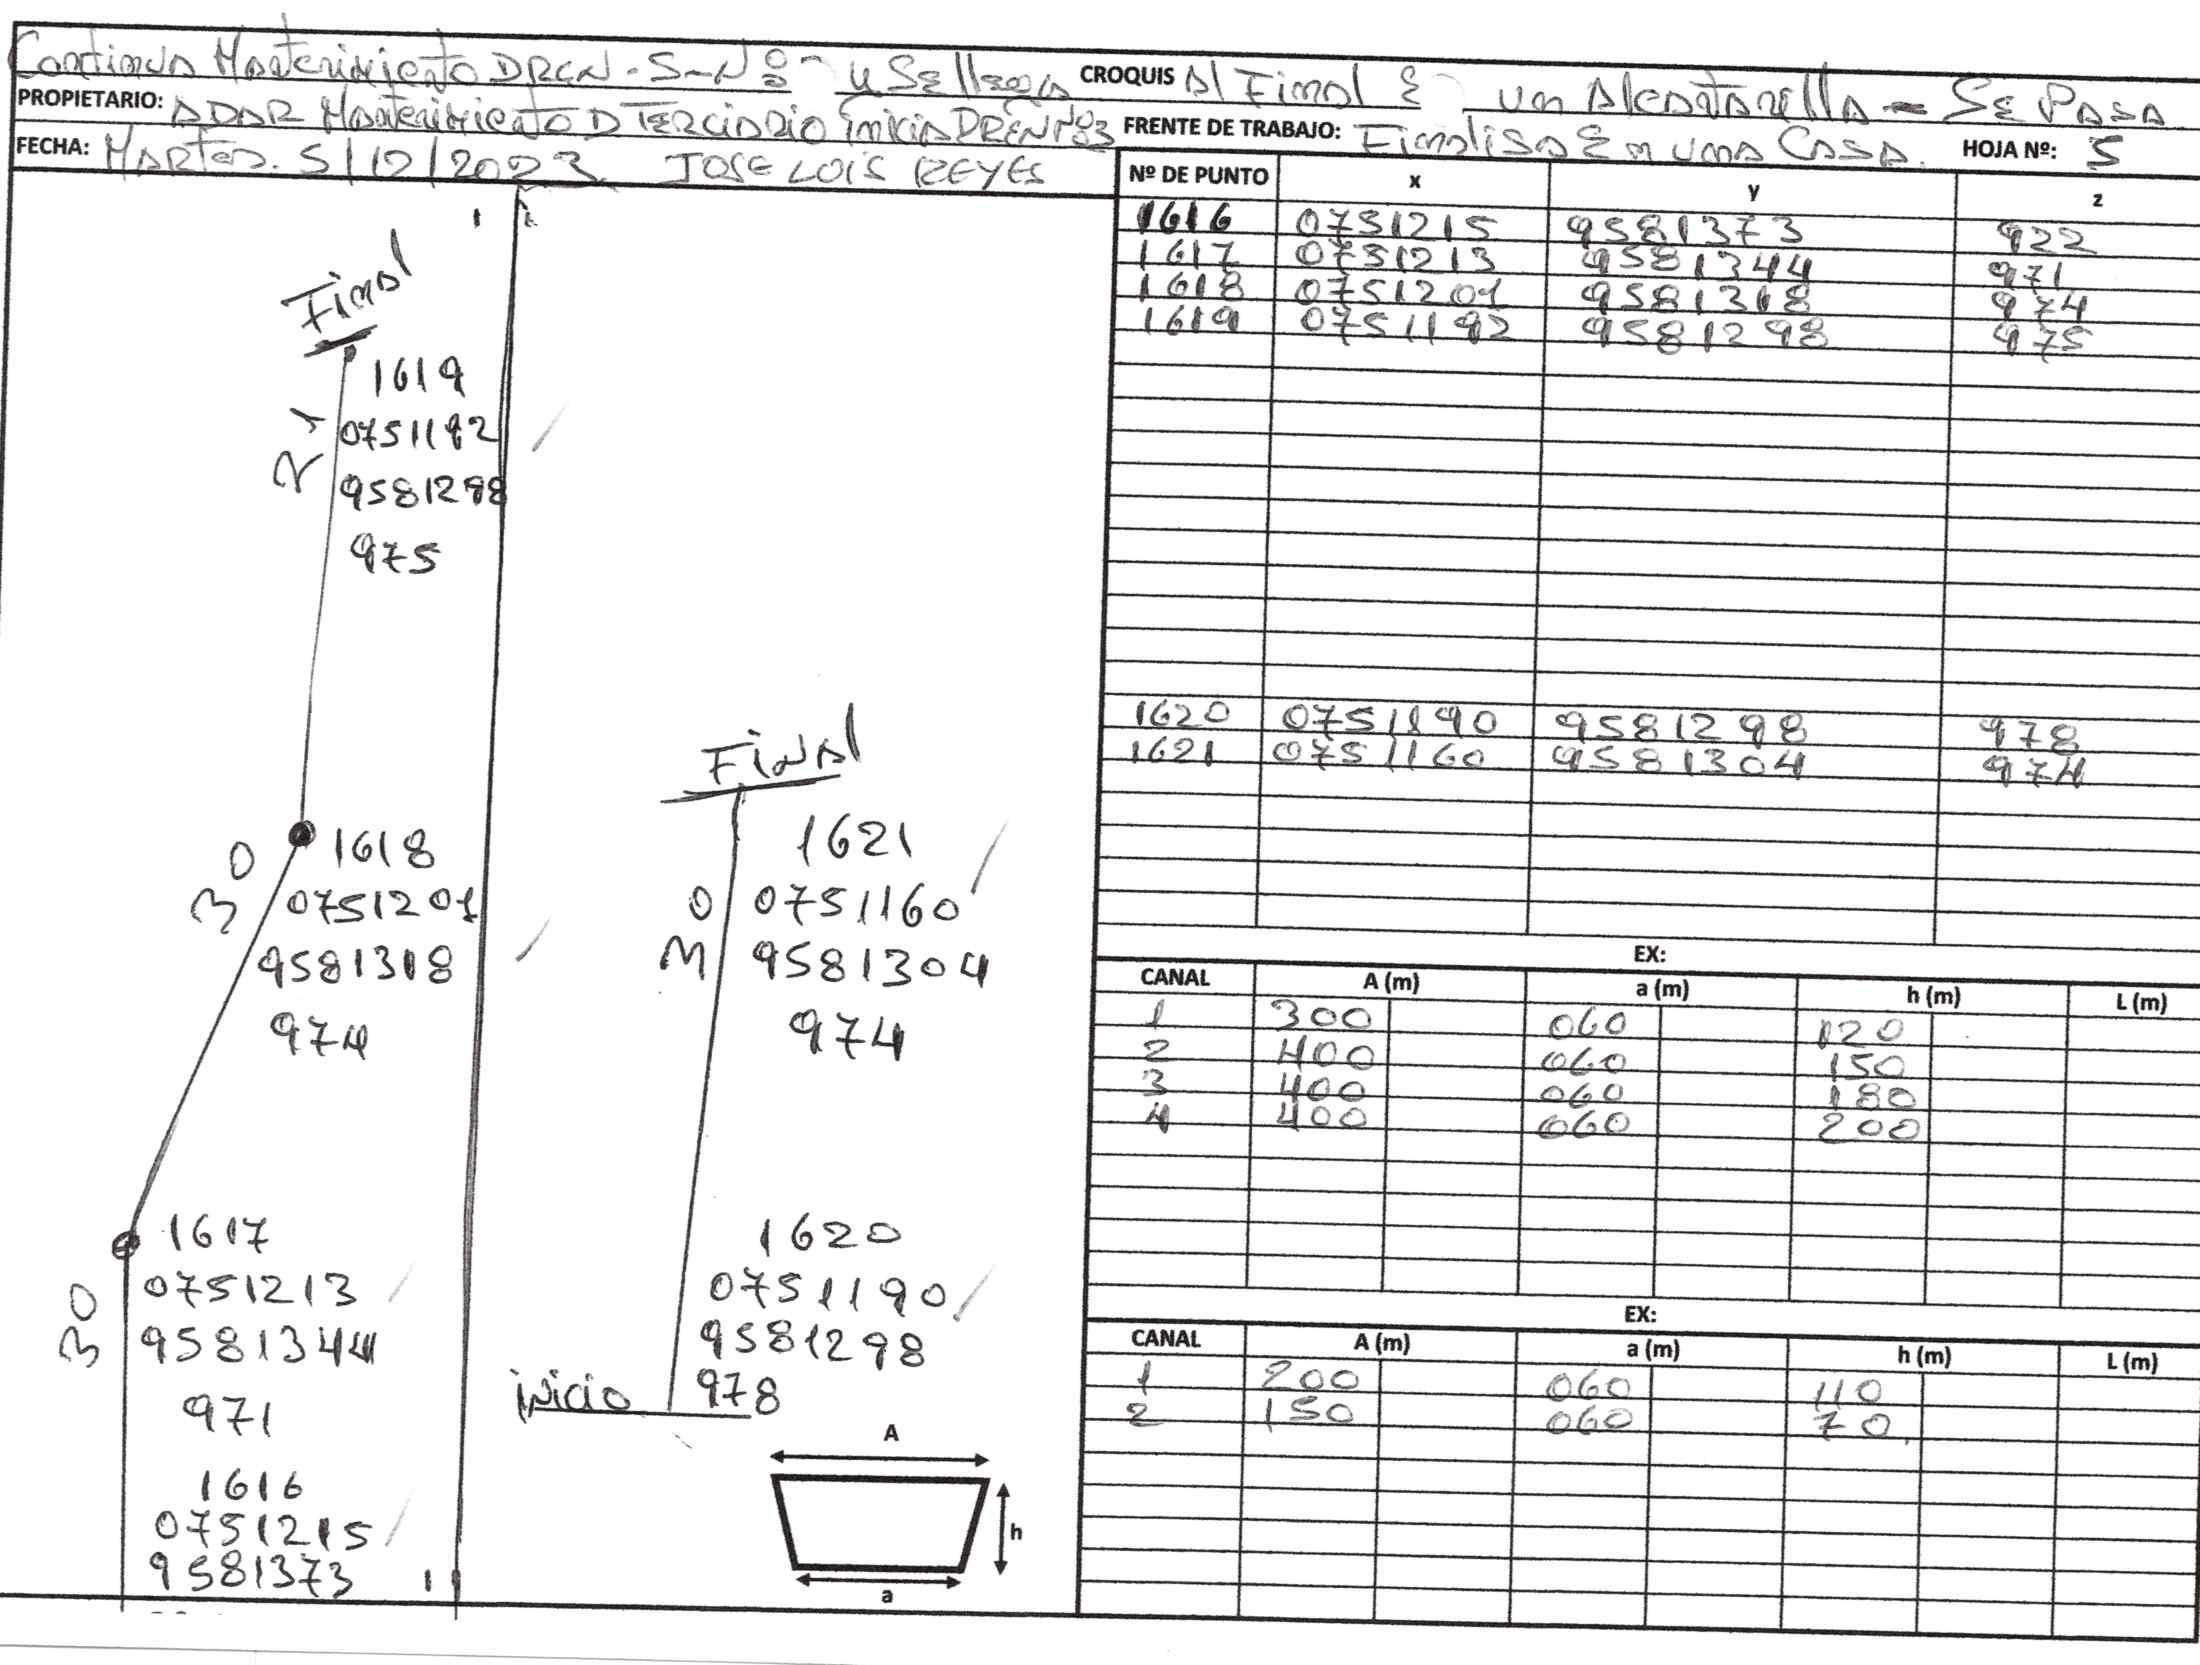 Continua Mantenimiento DREN - S-N° - y Se llega CROQUIS Al Final E un Alcantarilla - SE PASA
PROPIETARIO: A DAR Mantenimiento D TERCIARIO inicia DREN Nº3 FRENTE DE TRABAJO: Finalisa En una CASA.
FECHA: MARTES. 5/12/2023 JOSE LUIS REYES HOJA Nº: 5
Final
1619
0751192
21
9581298
975
1618
30
0751201
9581318
974
1617
0751213
30
9581344
971
1616
0751215
9581373
Final
1621
0751160
30
9581304
974
1620
0751190
9581298
inicio 978
A
h
a
Nº DE PUNTO x y z
1616 0751215 9581373 922
1617 0751213 9581344 971
1618 0751201 9581318 974
1619 0751192 9581298 975
1620 0751190 9581298 978
1621 0751160 9581304 974
EX:
CANAL A (m) a (m) h (m) L (m)
1 300 060 120
2 400 060 150
3 400 060 180
4 400 060 200
EX:
CANAL A (m) a (m) h (m) L (m)
1 200 060 110
2 150 060 70